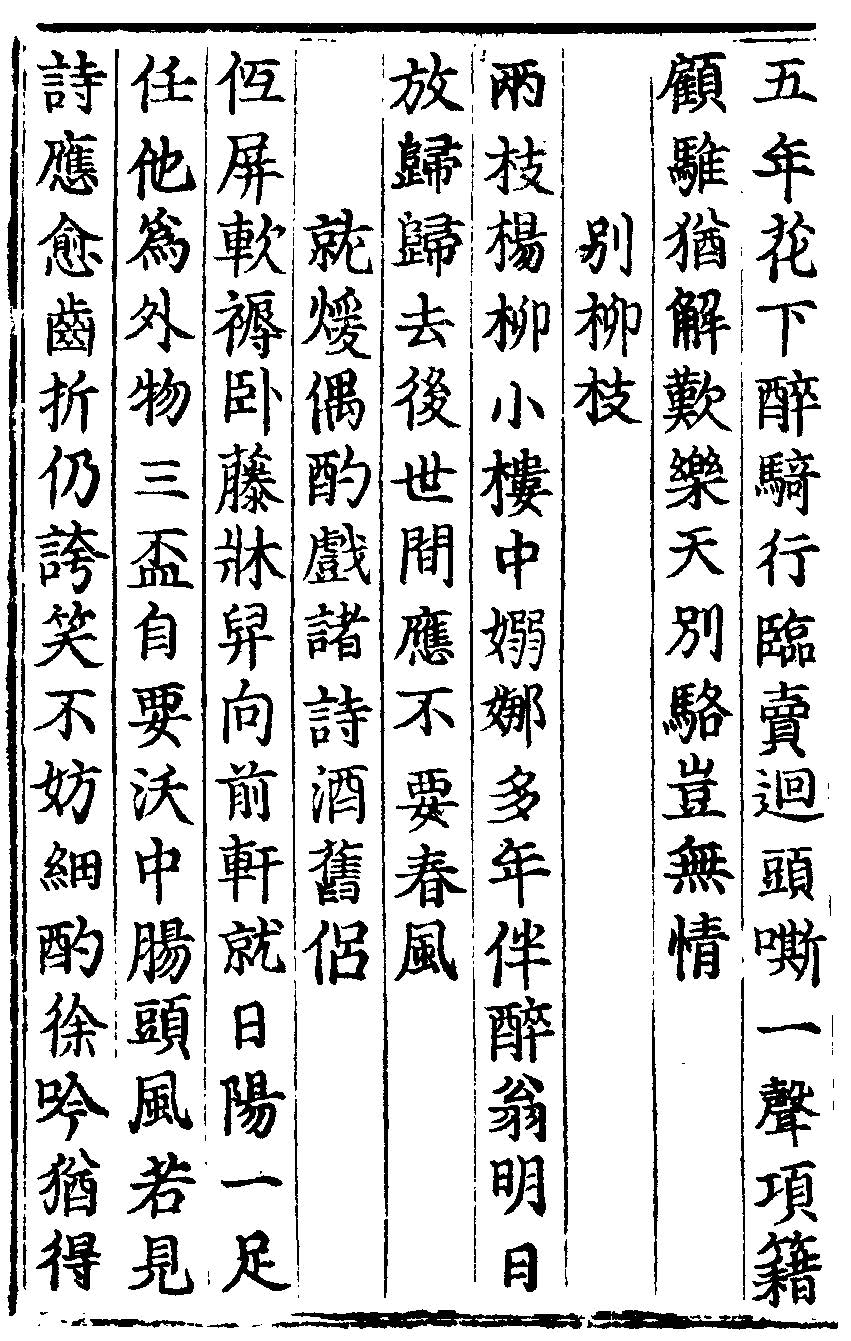 五年花下醉騎行臨賣迴頭嘶一聲項籍
顧騅猶解歎樂天別駱豈無情
別柳枝
兩枝楊柳小樓中嫋娜多年伴醉翁明日
放歸歸去後世間應不要春風
就煖偶酌戲諸詩酒舊侶
低屏軟褥卧藤牀舁向前軒就日陽一足
任他爲外物三盃自要沃中腸頭風若見
詩應愈齒折仍誇笑不妨細酌徐吟猶得